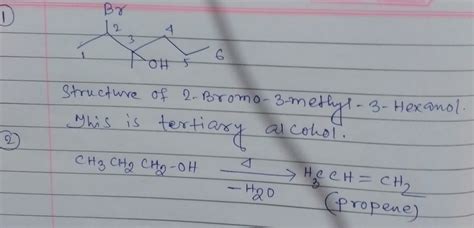 ①
Br
2 4
1 3 OH 5 6
Structure of 2-Bromo-3-methyl-3-Hexanol.
This is tertiary alcohol.
②
CH3CH2CH2-OH Δ→ H3CCH=CH2
-H2O (propene)